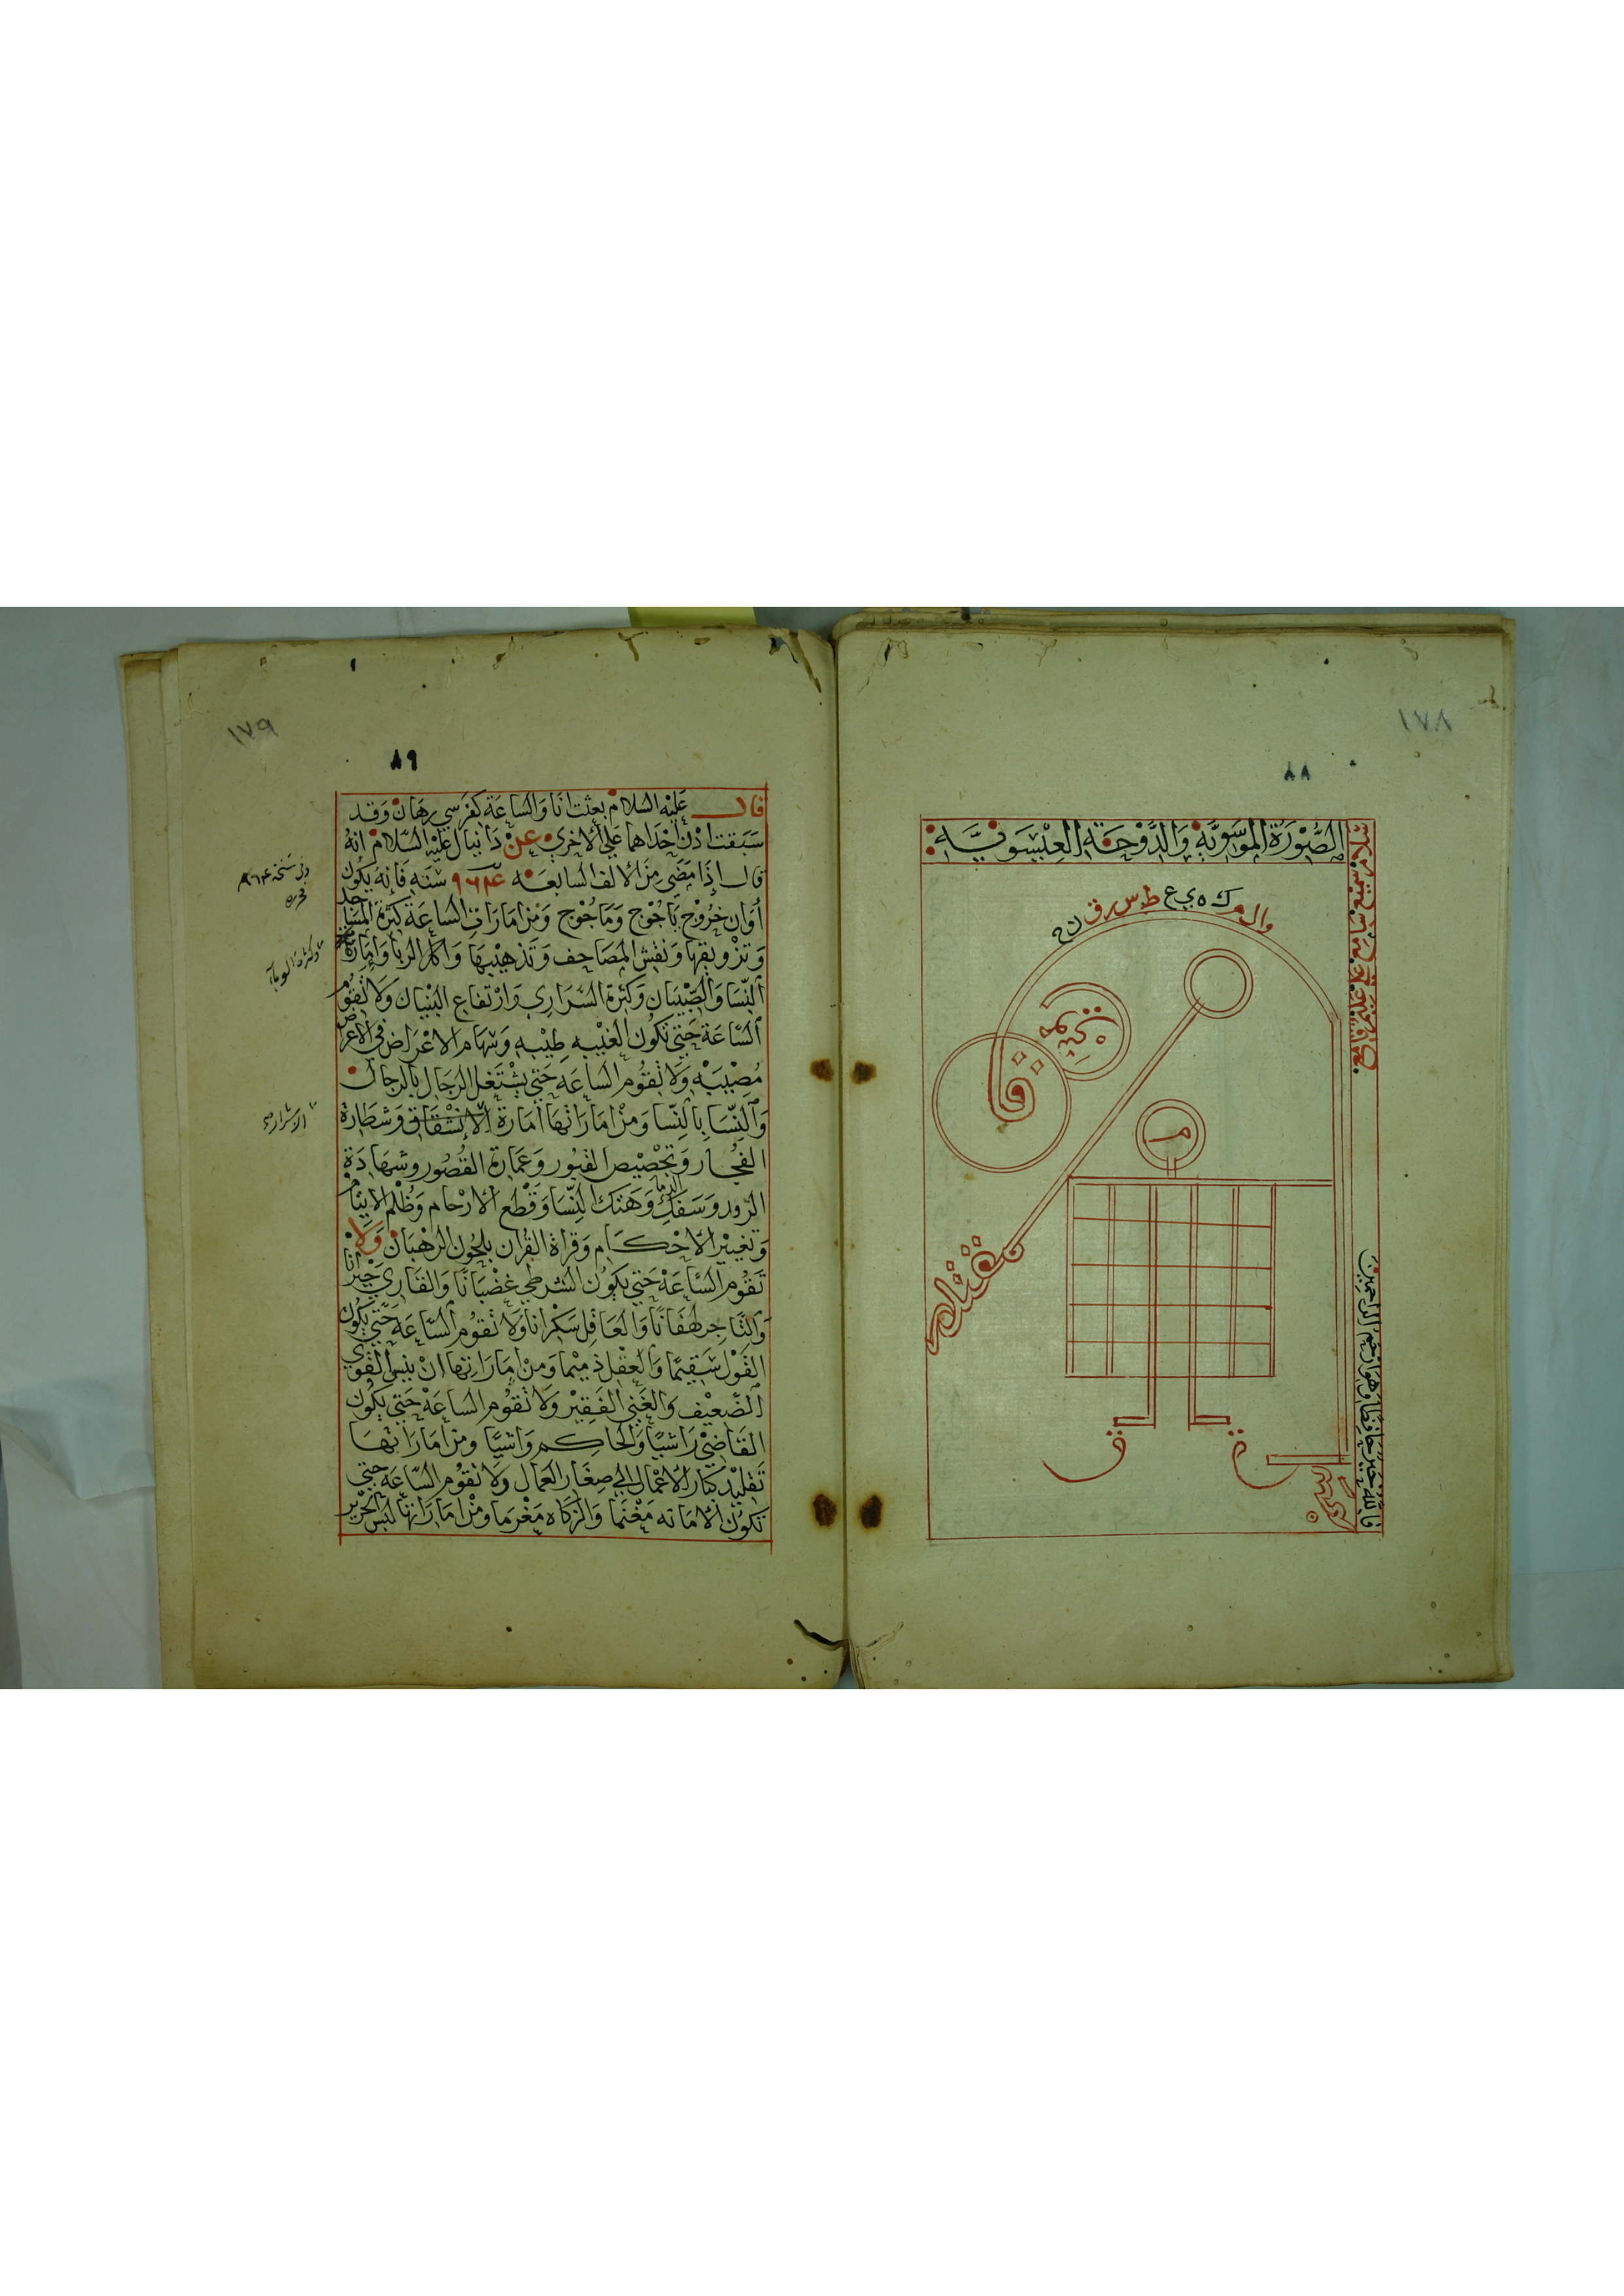 ١٧٨
٨٨
الصُّورَة الموسَويَّة وَالدَّوحَة العِيسَويَّة
والم ك ه ي ع ط س ر ق ن ح
م
فالله خير حافظا وهو ارحم الراحمين
١٧٩
٨٩
قال عليه السلام بعثت انا والساعة كفرسي رهان وقد
سبقت اذن احداهما علي الاخري عن دانيال عليه السلام انه
قال اذا مضي من الالف السابعه ٩٦٣ سنه فانه يكون
أوان خروج ياجوج وماجوج ومن امارات الساعة كثرة المساجد
وتزويقها ونقش المصاحف وتذهيبها واكل الربا وامارة
النسا والصبيان وكثرة السراري وارتفاع البنيان ولا تقوم
الساعة حتي تكون الغيبه طيبه وسهام الاغراض في الاعراض
مصيبه ولا تقوم الساعه حتي يشتغل الرجال بالرجال
والنسا بالنسا ومن اماراتها امارة الانشقاق وشطارة
الفجار وتجصيص القبور وعمارة القصور وشهادة
الزور وسفك الدما وهتك النسا وقطع الارحام وظلم الايتام
وتغيير الاحكام وقراة القران بلحون الرهبان ولا
تقوم الساعة حتي يكون الشرطي غضبانا والقاري جيرانا
والتاجر لهفانا والعاقل سكرانا ولا تقوم الساعه حتي يكون
القول سقيما والعقل ذميما ومن اماراتها ان ينسي القوي
الضعيف والغني الفقير ولا تقوم الساعة حتي يكون
القاضي راشيا والحاكم واشيا ومن اماراتها
تقليد كبار الاعمال الي صغار العمال ولا تقوم الساعه حتي
تكون الامانه مغنما والزكاه مغرما ومن اماراتها لبس الحرير
وفي نسخة
وكثرة الوبا
الاشرار